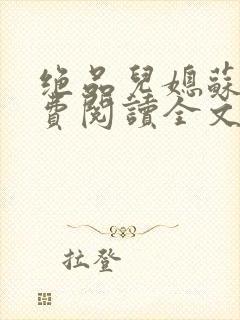 绝品兒媳蘇
費閱讀全文
拉登